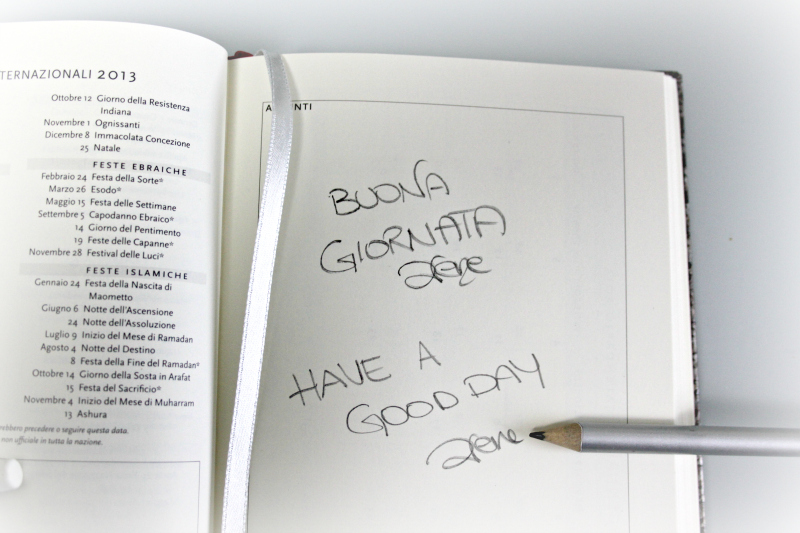 TERNAZIONALI 2013
Ottobre 12 Giorno della Resistenza
Indiana
Novembre 1 Ognissanti
Dicembre 8 Immacolata Concezione
25 Natale
FESTE EBRAICHE
Febbraio 24 Festa della Sorte*
Marzo 26 Esodo*
Maggio 15 Festa delle Settimane
Settembre 5 Capodanno Ebraico*
14 Giorno del Pentimento
19 Feste delle Capanne*
Novembre 28 Festival delle Luci*
FESTE ISLAMICHE
Gennaio 24 Festa della Nascita di
Maometto
Giugno 6 Notte dell'Ascensione
24 Notte dell'Assoluzione
Luglio 9 Inizio del Mese di Ramadan
Agosto 4 Notte del Destino
8 Festa della Fine del Ramadan*
Ottobre 14 Giorno della Sosta in Arafat
15 Festa del Sacrificio*
Novembre 4 Inizio del Mese di Muharram
13 Ashura
rebbero precedere o seguire questa data.
non ufficiale in tutta la nazione.
A NTI
BUONA
GIORNATA
Irene
HAVE A
GOOD DAY
Irene